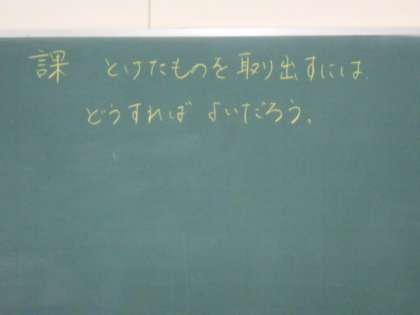 課 とけたものを取り出すには
どうすれば よいだろう。